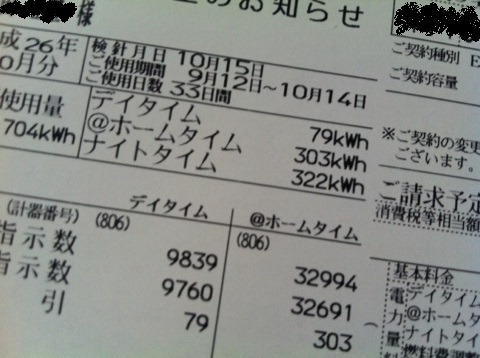 様
のお知らせ
成26年
0月分
検針月日 10月15日
ご使用期間 9月12日～10月14日
ご使用日数 33日間
ご契約種別 E
ご契約容量
使用量
704kWh
デイタイム 79kWh
@ホームタイム 303kWh
ナイトタイム 322kWh
※ご契約の変更
ございます。
ご請求予定
消費税等相当額
(計器番号) デイタイム @ホームタイム
(806) (806)
指示数 9839 32994
指示数 9760 32691
引 79 303
基本料金
電力量
デイタイム
@ホームタイ
ナイトタイム
燃料費調整